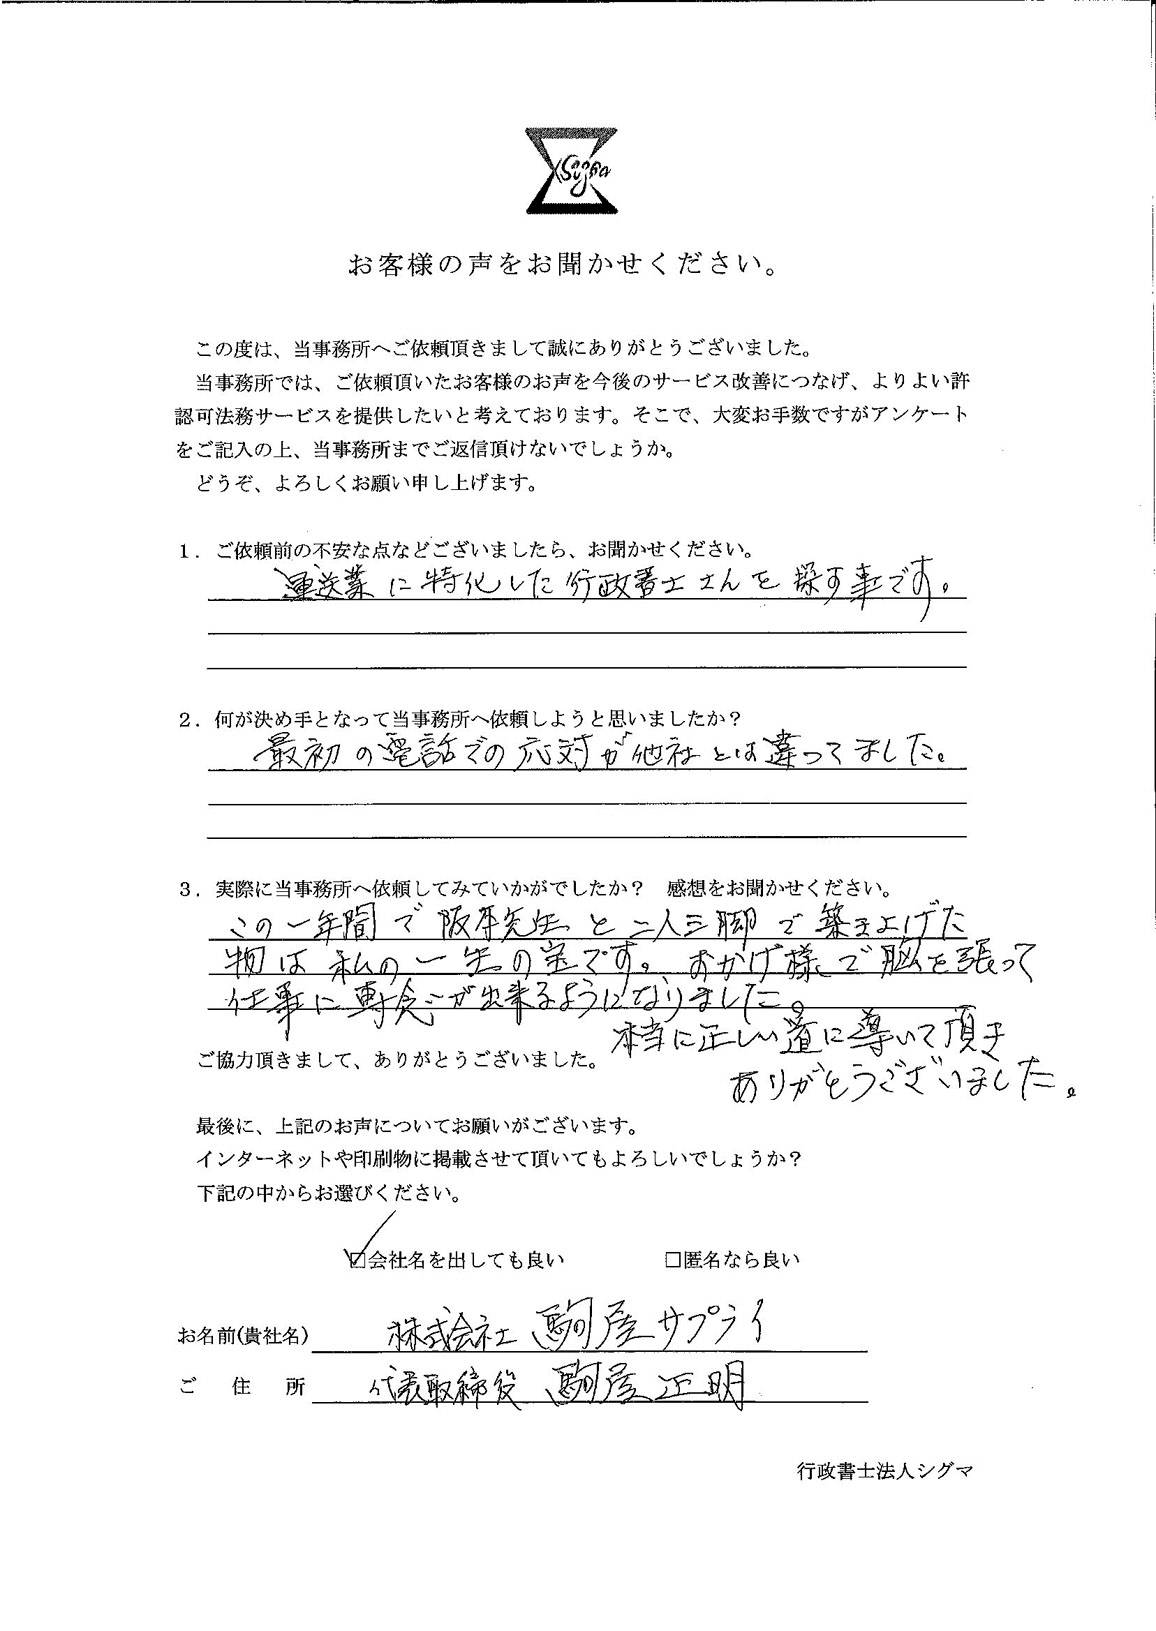 Sigma
お客様の声をお聞かせください。
この度は、当事務所へご依頼頂きまして誠にありがとうございました。
当事務所では、ご依頼頂いたお客様のお声を今後のサービス改善につなげ、よりよい許
認可法務サービスを提供したいと考えております。そこで、大変お手数ですがアンケート
をご記入の上、当事務所までご返信頂けないでしょうか。
どうぞ、よろしくお願い申し上げます。
１．ご依頼前の不安な点などございましたら、お聞かせください。
運送業に特化した行政書士さんを探す事です。
２．何が決め手となって当事務所へ依頼しようと思いましたか？
最初の電話での応対が他社とは違ってました。
３．実際に当事務所へ依頼してみていかがでしたか？　感想をお聞かせください。
この一年間で阪本先生と二人三脚で築き上げた
物は私の一生の宝です。おかげ様で胸を張って
仕事に専念が出来るようになりました。
本当に正しい道に導いて頂き
ご協力頂きまして、ありがとうございました。
ありがとうございました。
最後に、上記のお声についてお願いがございます。
インターネットや印刷物に掲載させて頂いてもよろしいでしょうか？
下記の中からお選びください。
☑会社名を出しても良い　□匿名なら良い
お名前(貴社名) 株式会社 駒屋サプライ
ご　住　所 代表取締役 駒屋正明
行政書士法人シグマ